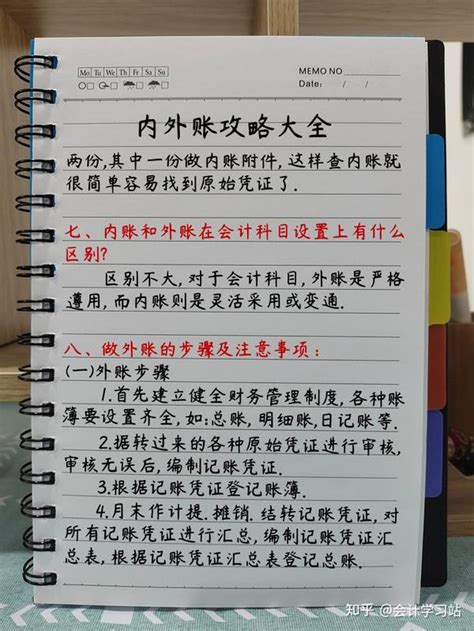 Mo Tu We Th Fr Sa Su
MEMO NO.
Date: / /
内外账攻略大全
两份,其中一份做内账附件,这样查内账就
很简单容易找到原始凭证了.
七、内账和外账在会计科目设置上有什么
区别?
区别不大,对于会计科目,外账是严格
遵用,而内账则是灵活采用或变通.
八、做外账的步骤及注意事项:
(一)外账步骤
1.首先建立健全财务管理制度,各种账
簿要设置齐全,如:总账,明细账,日记账等.
2.据转过来的各种原始凭证进行审核,
审核无误后,编制记账凭证.
3.根据记账凭证登记账簿.
4.月末作计提.摊销.结转记账凭证,对
所有记账凭证进行汇总,编制记账凭证汇
总表,根据记账凭证汇总表登记总账.
知乎 @会计学习站